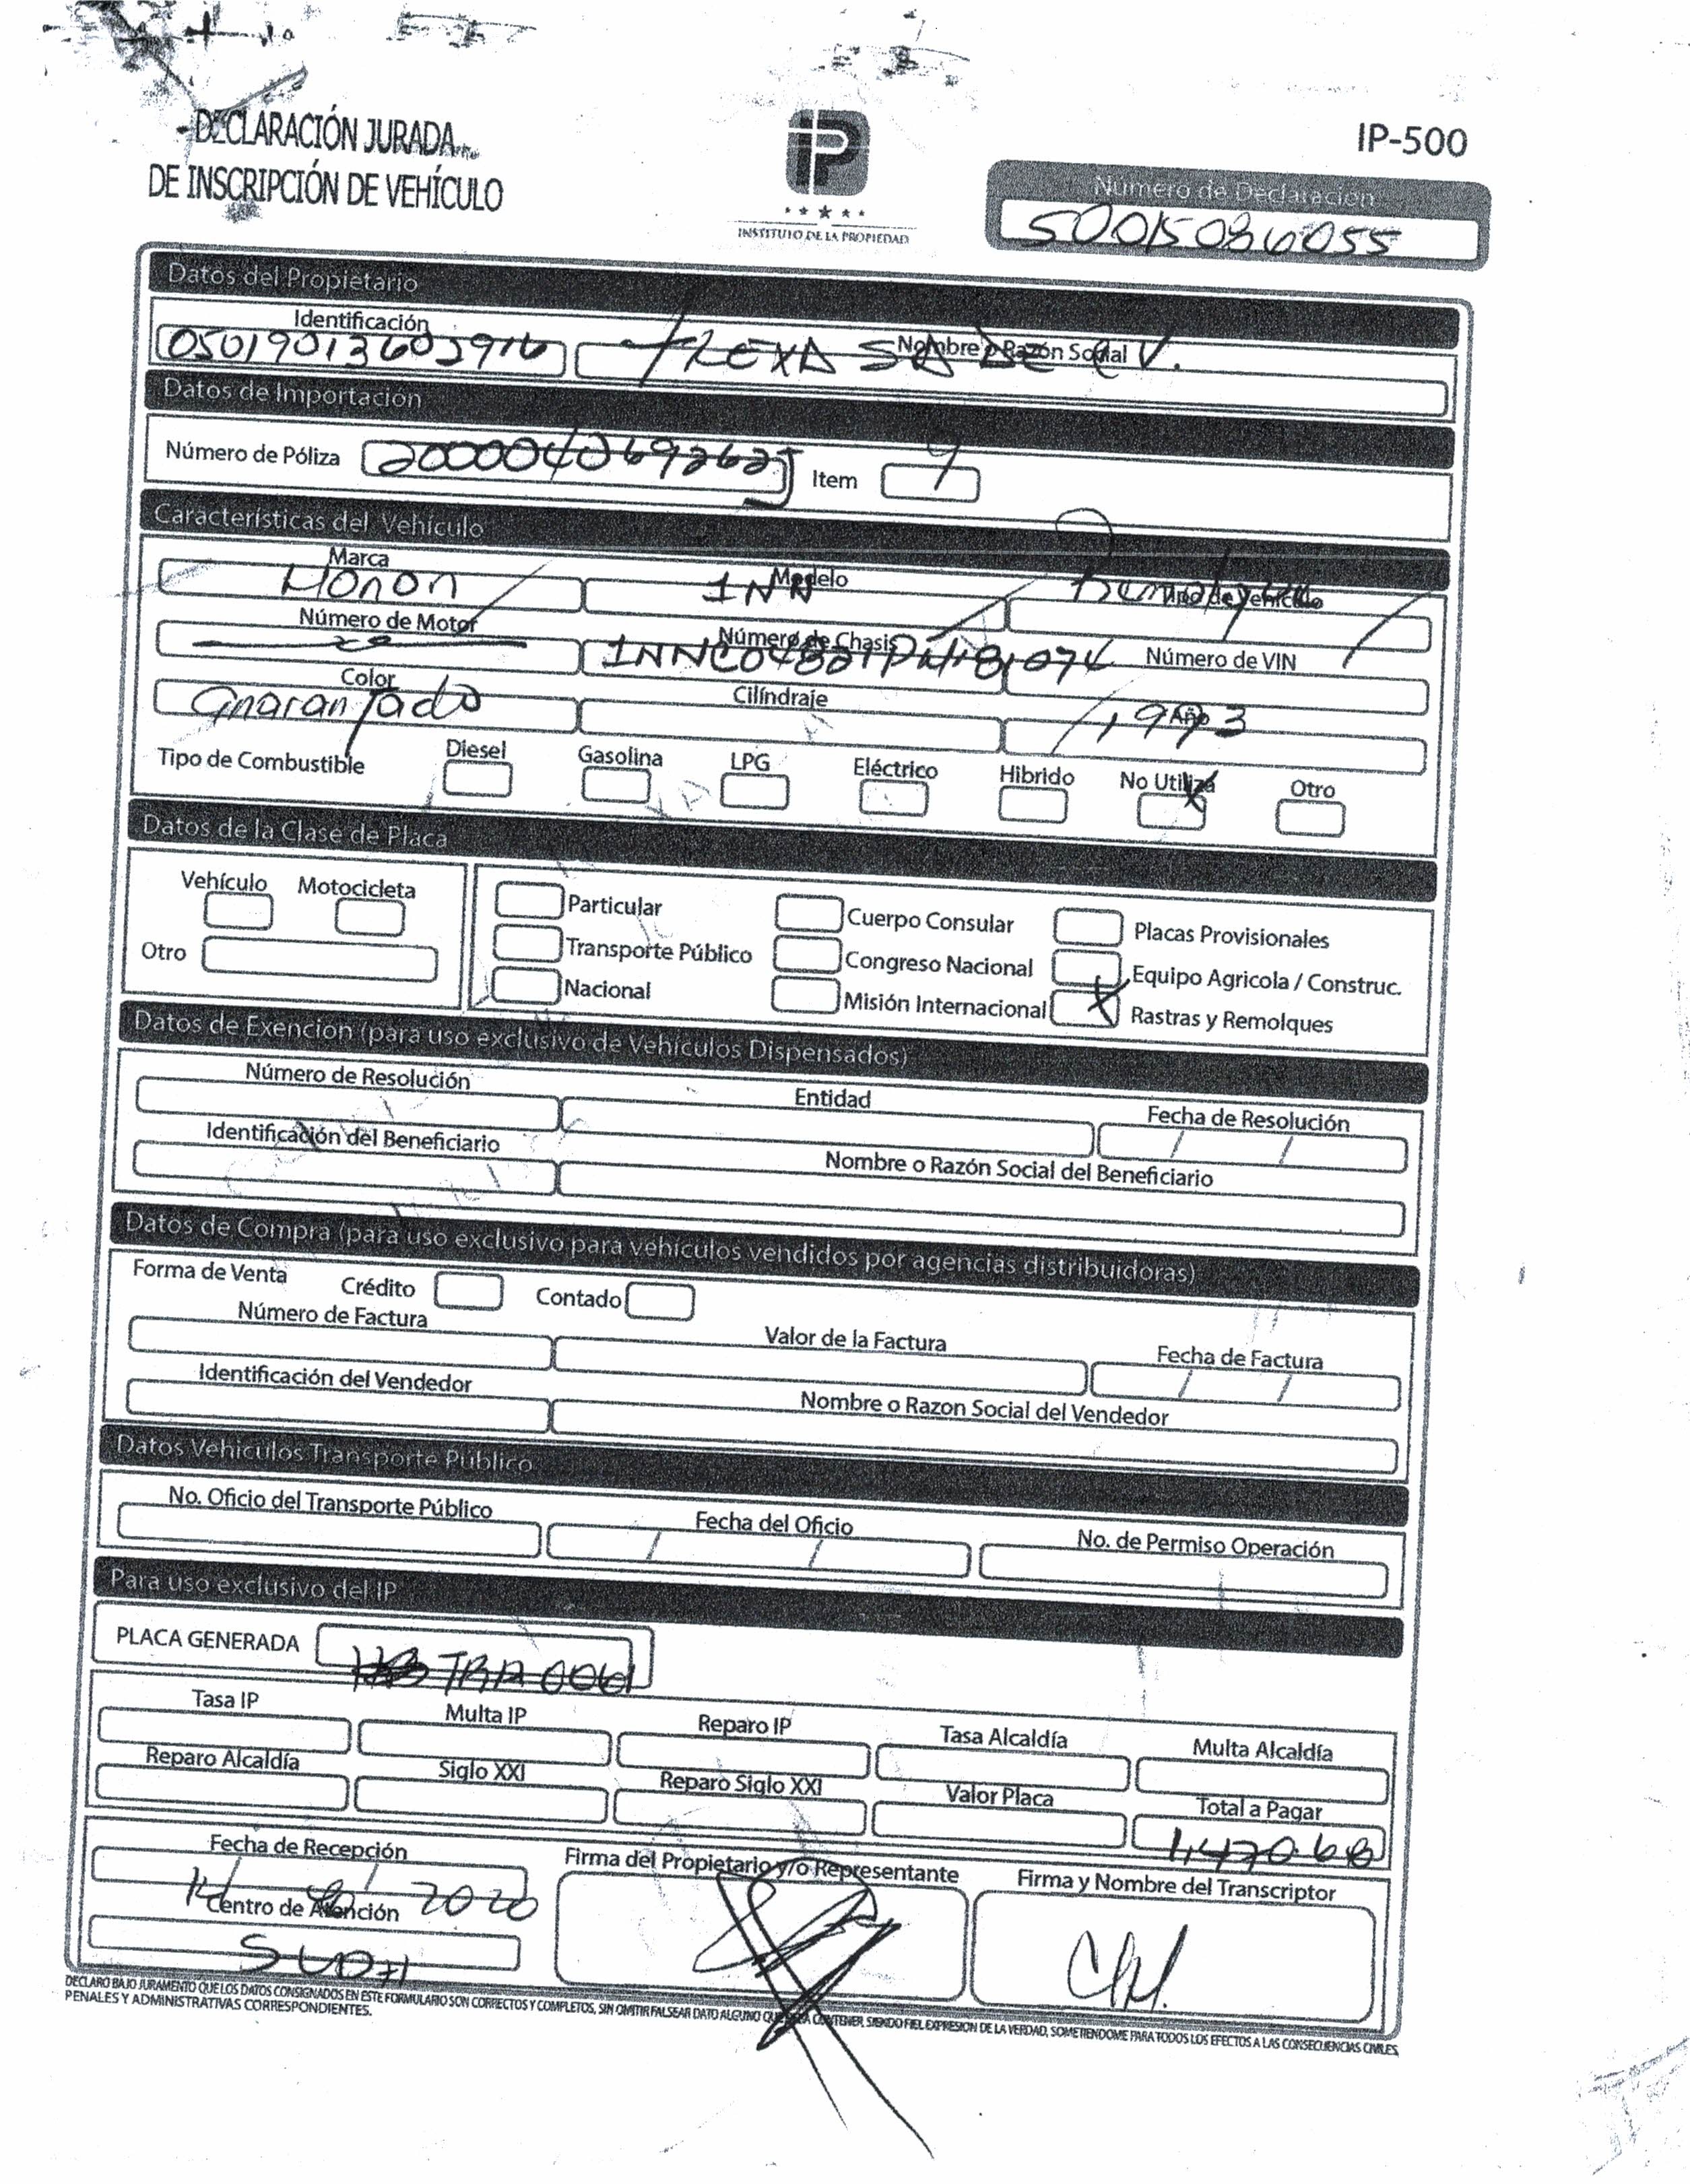 DECLARACIÓN JURADA
DE INSCRIPCIÓN DE VEHÍCULO
IP
INSTITUTO DE LA PROPIEDAD
IP-500
Número de Declaración
50015086055
Datos del Propietario
Identificación Nombre o Razón Social
SA DE C V.
Datos de Importación
Número de Póliza Item
Características del Vehículo
Marca Modelo Tipo de Vehículo
Monon 1NN
Número de Motor Número de Chasis Número de VIN
Color Cilíndraje Año
Anaranjado 1993
Tipo de Combustible Diesel Gasolina LPG Eléctrico Hibrido No Utiliza X Otro
Datos de la Clase de Placa
Vehículo Motocicleta
Otro
Particular Cuerpo Consular Placas Provisionales
Transporte Público Congreso Nacional Equipo Agricola / Construc.
Nacional Misión Internacional X Rastras y Remolques
Datos de Exencion (para uso exclusivo de Vehículos Dispensados)
Número de Resolución Entidad Fecha de Resolución
/ /
Identificación del Beneficiario Nombre o Razón Social del Beneficiario
Datos de Compra (para uso exclusivo para vehículos vendidos por agencias distribuidoras)
Forma de Venta Crédito Contado
Número de Factura Valor de la Factura Fecha de Factura
/ /
Identificación del Vendedor Nombre o Razon Social del Vendedor
Datos Vehiculos Transporte Público
No. Oficio del Transporte Público Fecha del Oficio No. de Permiso Operación
/ /
Para uso exclusivo del IP
PLACA GENERADA
Tasa IP Multa IP Reparo IP Tasa Alcaldía Multa Alcaldía
Reparo Alcaldía Siglo XXI Reparo Siglo XXI Valor Placa Total a Pagar
1,470.68
Fecha de Recepción Firma del Propietario y/o Representante Firma y Nombre del Transcriptor
2020
Centro de Atención
DECLARO BAJO JURAMENTO QUE LOS DATOS CONSIGNADOS EN ESTE FORMULARIO SON CORRECTOS Y COMPLETOS, SIN OMITIR FALSEAR DATO ALGUNO QUE CONTENER, SIENDO FIEL EXPRESION DE LA VERDAD, SOMETIENDOME PARA TODOS LOS EFECTOS A LAS CONSECUENCIAS CIVILES,
PENALES Y ADMINISTRATIVAS CORRESPONDIENTES.